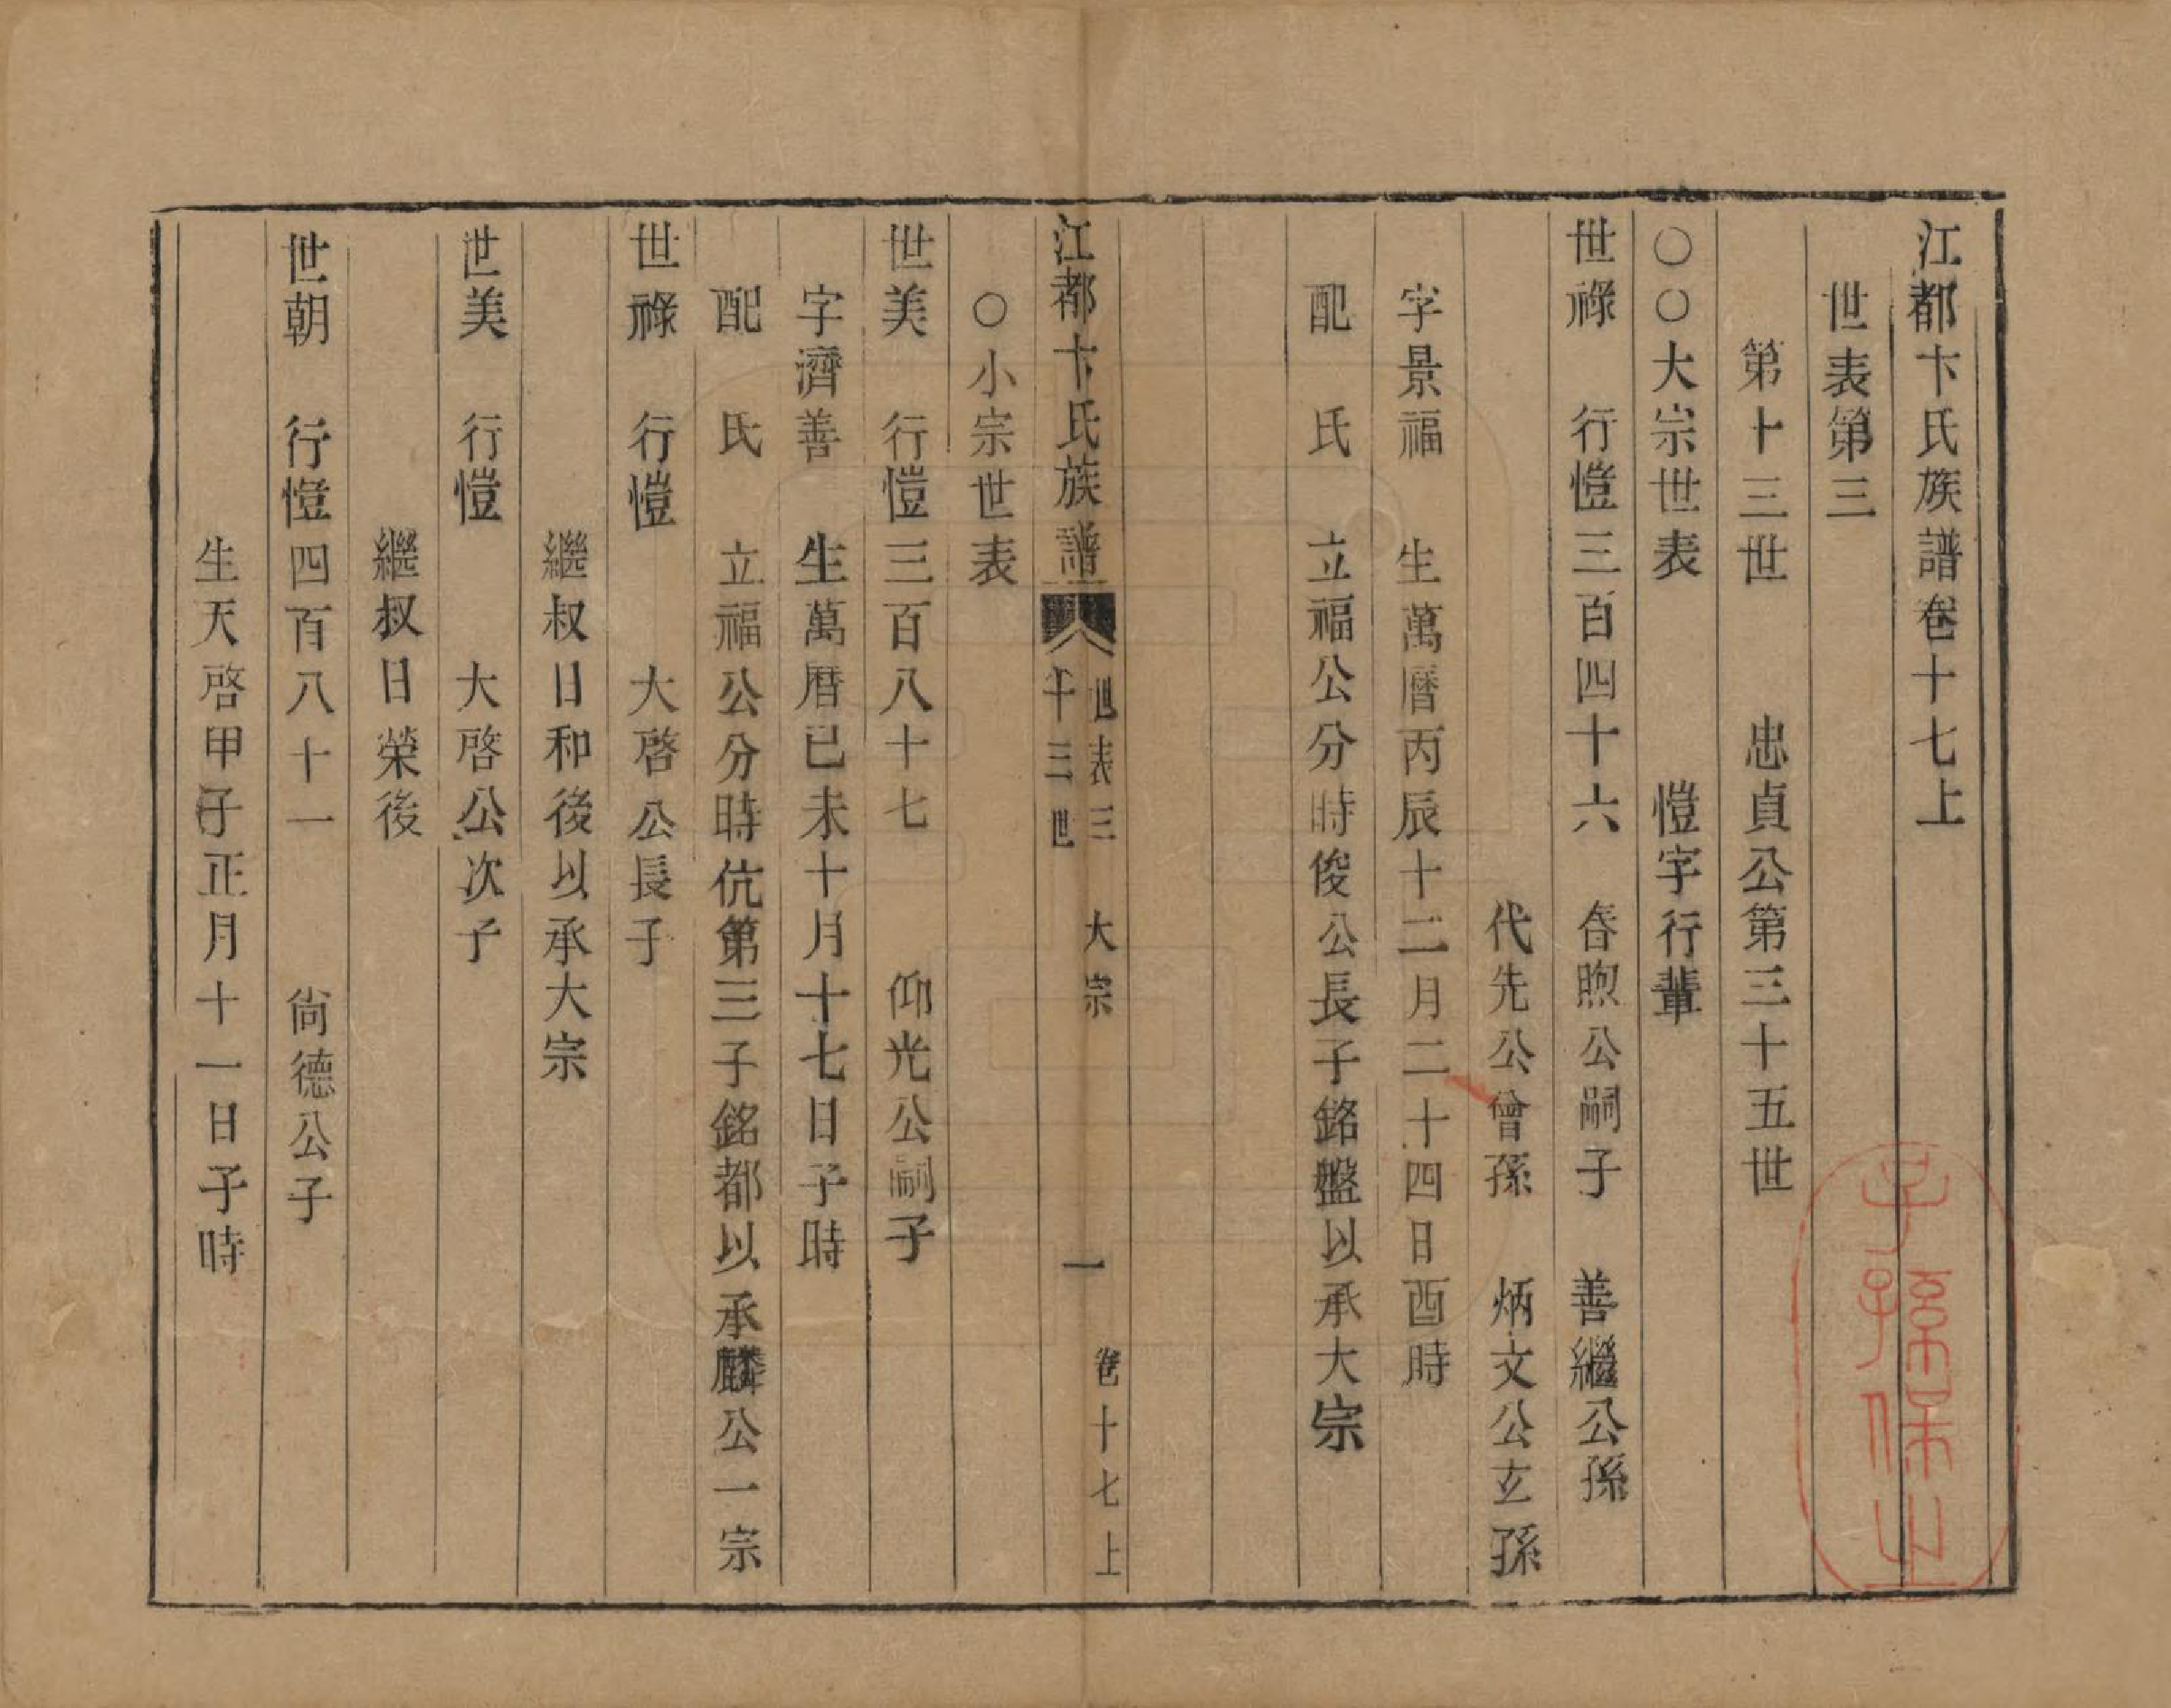 江都卞氏族譜卷十七上
世表第三
第十三世　忠貞公第三十五世
○○大宗世表　愷字行輩
世祿　行愷三百四十六　春煦公嗣子　善繼公孫
代先公曾孫　炳文公玄孫
字景福　生萬曆丙辰十二月二十四日酉時
配　氏　立福公分時俊公長子銘盤以承大宗
江都卞氏族譜　世表三　大宗　卷十七上
十三世　一
○小宗世表
世美　行愷三百八十七　仰光公嗣子
字濟善　生萬曆己未十月十七日子時
配　氏　立福公分時伉第三子銘都以承麟公一宗
世祿　行愷　大啓公長子
繼叔日和後以承大宗
世美　行愷　大啓公次子
繼叔日榮後
世朝　行愷四百八十一　尙德公子
生天啓甲子正月十一日子時
子孫保之